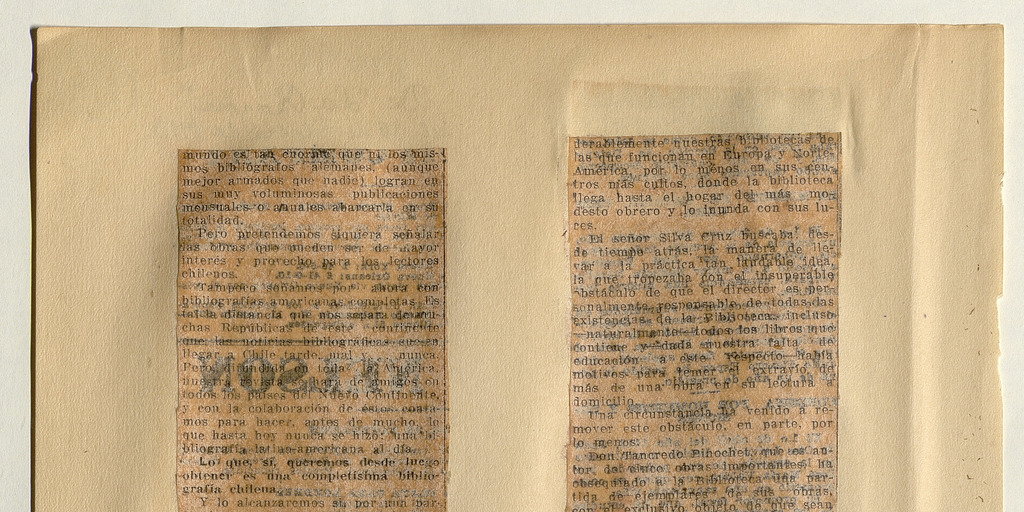 mundo es tan enorme que ni los mis-
mos bibliógrafos alemanes, (aunque
mejor armados que nadie) logran en
sus muy voluminosas publicaciones
mensuales o anuales abarcarla en su
totalidad.
Pero pretendemos siquiera señalar
las obras que pueden ser de mayor
interés y provecho para los lectores
chilenos.
Tampoco soñamos por ahora con
bibliografías americanas completas. Es
tal la distancia que nos separa de mu-
chas Repúblicas de este continente
que las noticias bibliográficas suelen
llegar a Chile tarde, mal y nunca.
Pero difundida en toda América,
nuestra revista hará de amigos en
todos los países del Nuevo Continente,
y con la colaboración de estos conta-
mos para hacer, antes de mucho, lo
que hasta hoy nunca se hizo: una bi-
bliografía latino-americana al día.
Lo que, sí, queremos desde luego
obtener es una completísima biblio-
grafía chilena.
Y lo alcanzaremos si, por una par-
derablemente nuestras bibliotecas de
las que funcionan en Europa y Norte-
América, por lo menos en sus cen-
tros más cultos, donde la biblioteca
llega hasta el hogar del más mo-
desto obrero y lo inunda con sus lu-
ces.
El señor Silva Cruz buscaba des-
de tiempo atrás, la manera de lle-
var a la práctica tan laudible idea,
la que tropezaba con el insuperable
obstáculo de que el director es per-
sonalmente responsable de todas las
existencias de la Biblioteca, incluso
—naturalmente—todos los libros que
contiene y—dada nuestra falta de
educación a este respecto—había
motivos para temer el extravío de
más de una obra en su lectura a
domicilio.
Una circunstancia ha venido a re-
mover este obstáculo, en parte, por
lo menos:
Don Tancredo Pinochet, que es au-
tor de cinco obras importantes, ha
obsequiado a la Biblioteca una par-
tida de ejemplares de sus obras,
con el exclusivo objeto de que sean